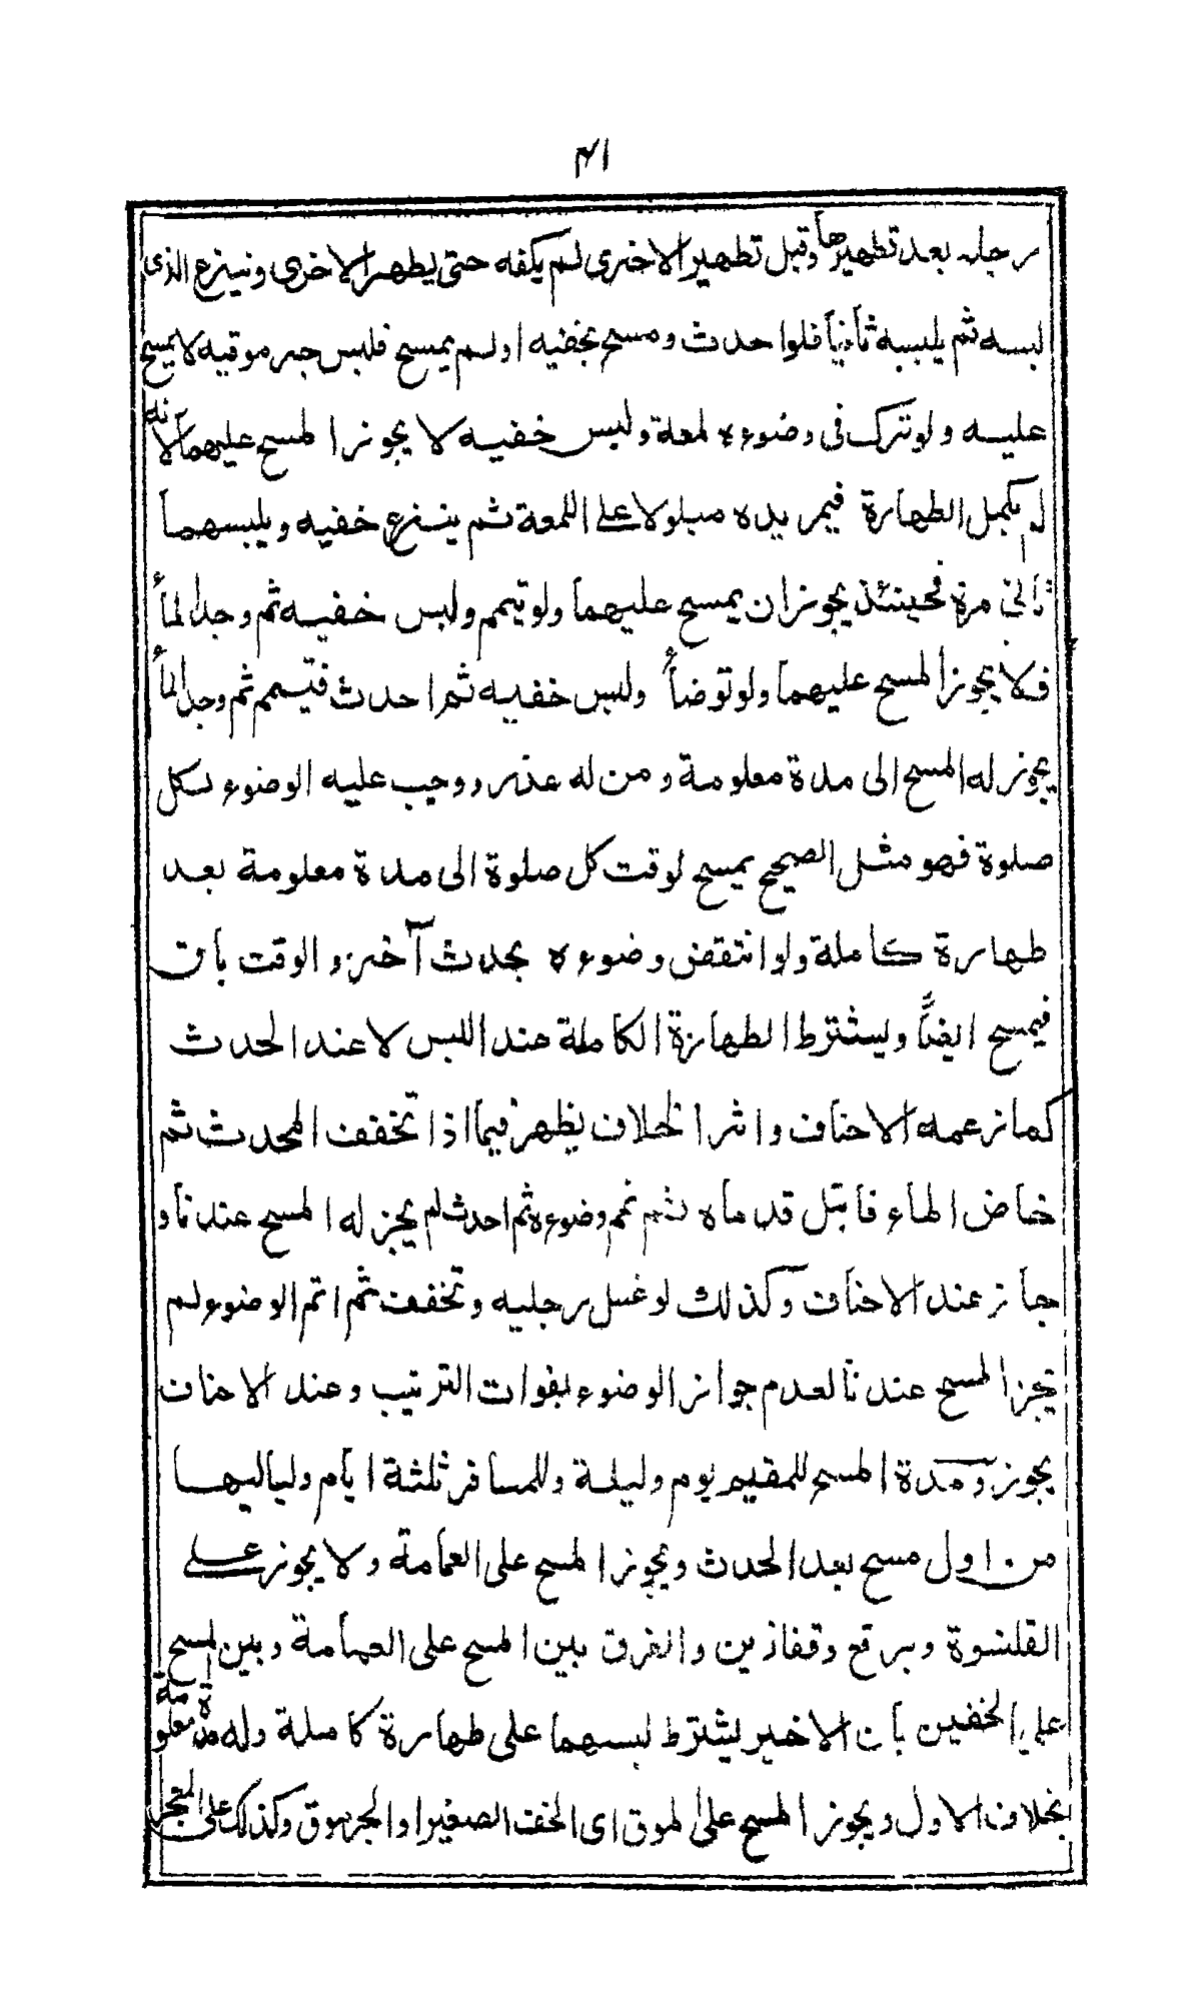 ٤١
رجله بعد تطهيرها وقبل تطهير الاخرى لم يكفه حتى يطهر الاخرى وينزع الذى
لبسه ثم يلبسه ثانياً فلو احدث ومسح بخفيه اولم يمسح فلبس جرموقيه لا يمسح
عليه ولو ترك فى وضوءه لمعة ولبس خفيه لا يجوز المسح عليهما لانه
لم يكمل الطهارة فيمر يده مبلولا على اللمعة ثم ينزع خفيه ويلبسهما
ثانى مرة فحينئذ يجوز ان يمسح عليهما ولو تيمم ولبس خفيه ثم وجد الماء
فلا يجوز المسح عليهما ولو توضأ ولبس خفيه ثم احدث فتيمم ثم وجد الماء
يجوز له المسح الى مدة معلومة ومن له عذر ووجب عليه الوضوء لكل
صلوة فهو مثل الصحيح يمسح لوقت كل صلوة الى مدة معلومة بعد
طهارة كاملة ولو انتقض وضوءه بحدث آخر والوقت باق
فيمسح ايضاً ويشترط الطهارة الكاملة عند اللبس لا عند الحدث
كما زعمه الاحناف واثر الخلاف يظهر فيما اذا تخفف المحدث ثم
خاض الماء فابتل قدماه ثم تمم وضوءه ثم احدث لم يجز له المسح عندنا و
جاز عند الاحناف وكذلك لو غسل رجليه وتخفف ثم اتم الوضوء لم
يجز المسح عندنا لعدم جواز الوضوء بفوات الترتيب وعند الاحناف
يجوز ومدة المسح للمقيم يوم وليلة وللمسافر ثلثة ايام ولياليها
من اول مسح بعد الحدث ويجوز المسح على العمامة ولا يجوز على
القلنسوة وبرقع وقفازين والفرق بين المسح على العمامة وبين المسح
على الخفين بان الاخير يشترط لبسهما على طهارة كاملة وله مدة معلومة
بخلاف الاول ويجوز المسح على الموق اى الخف الصغير او الجرموق وكذلك على